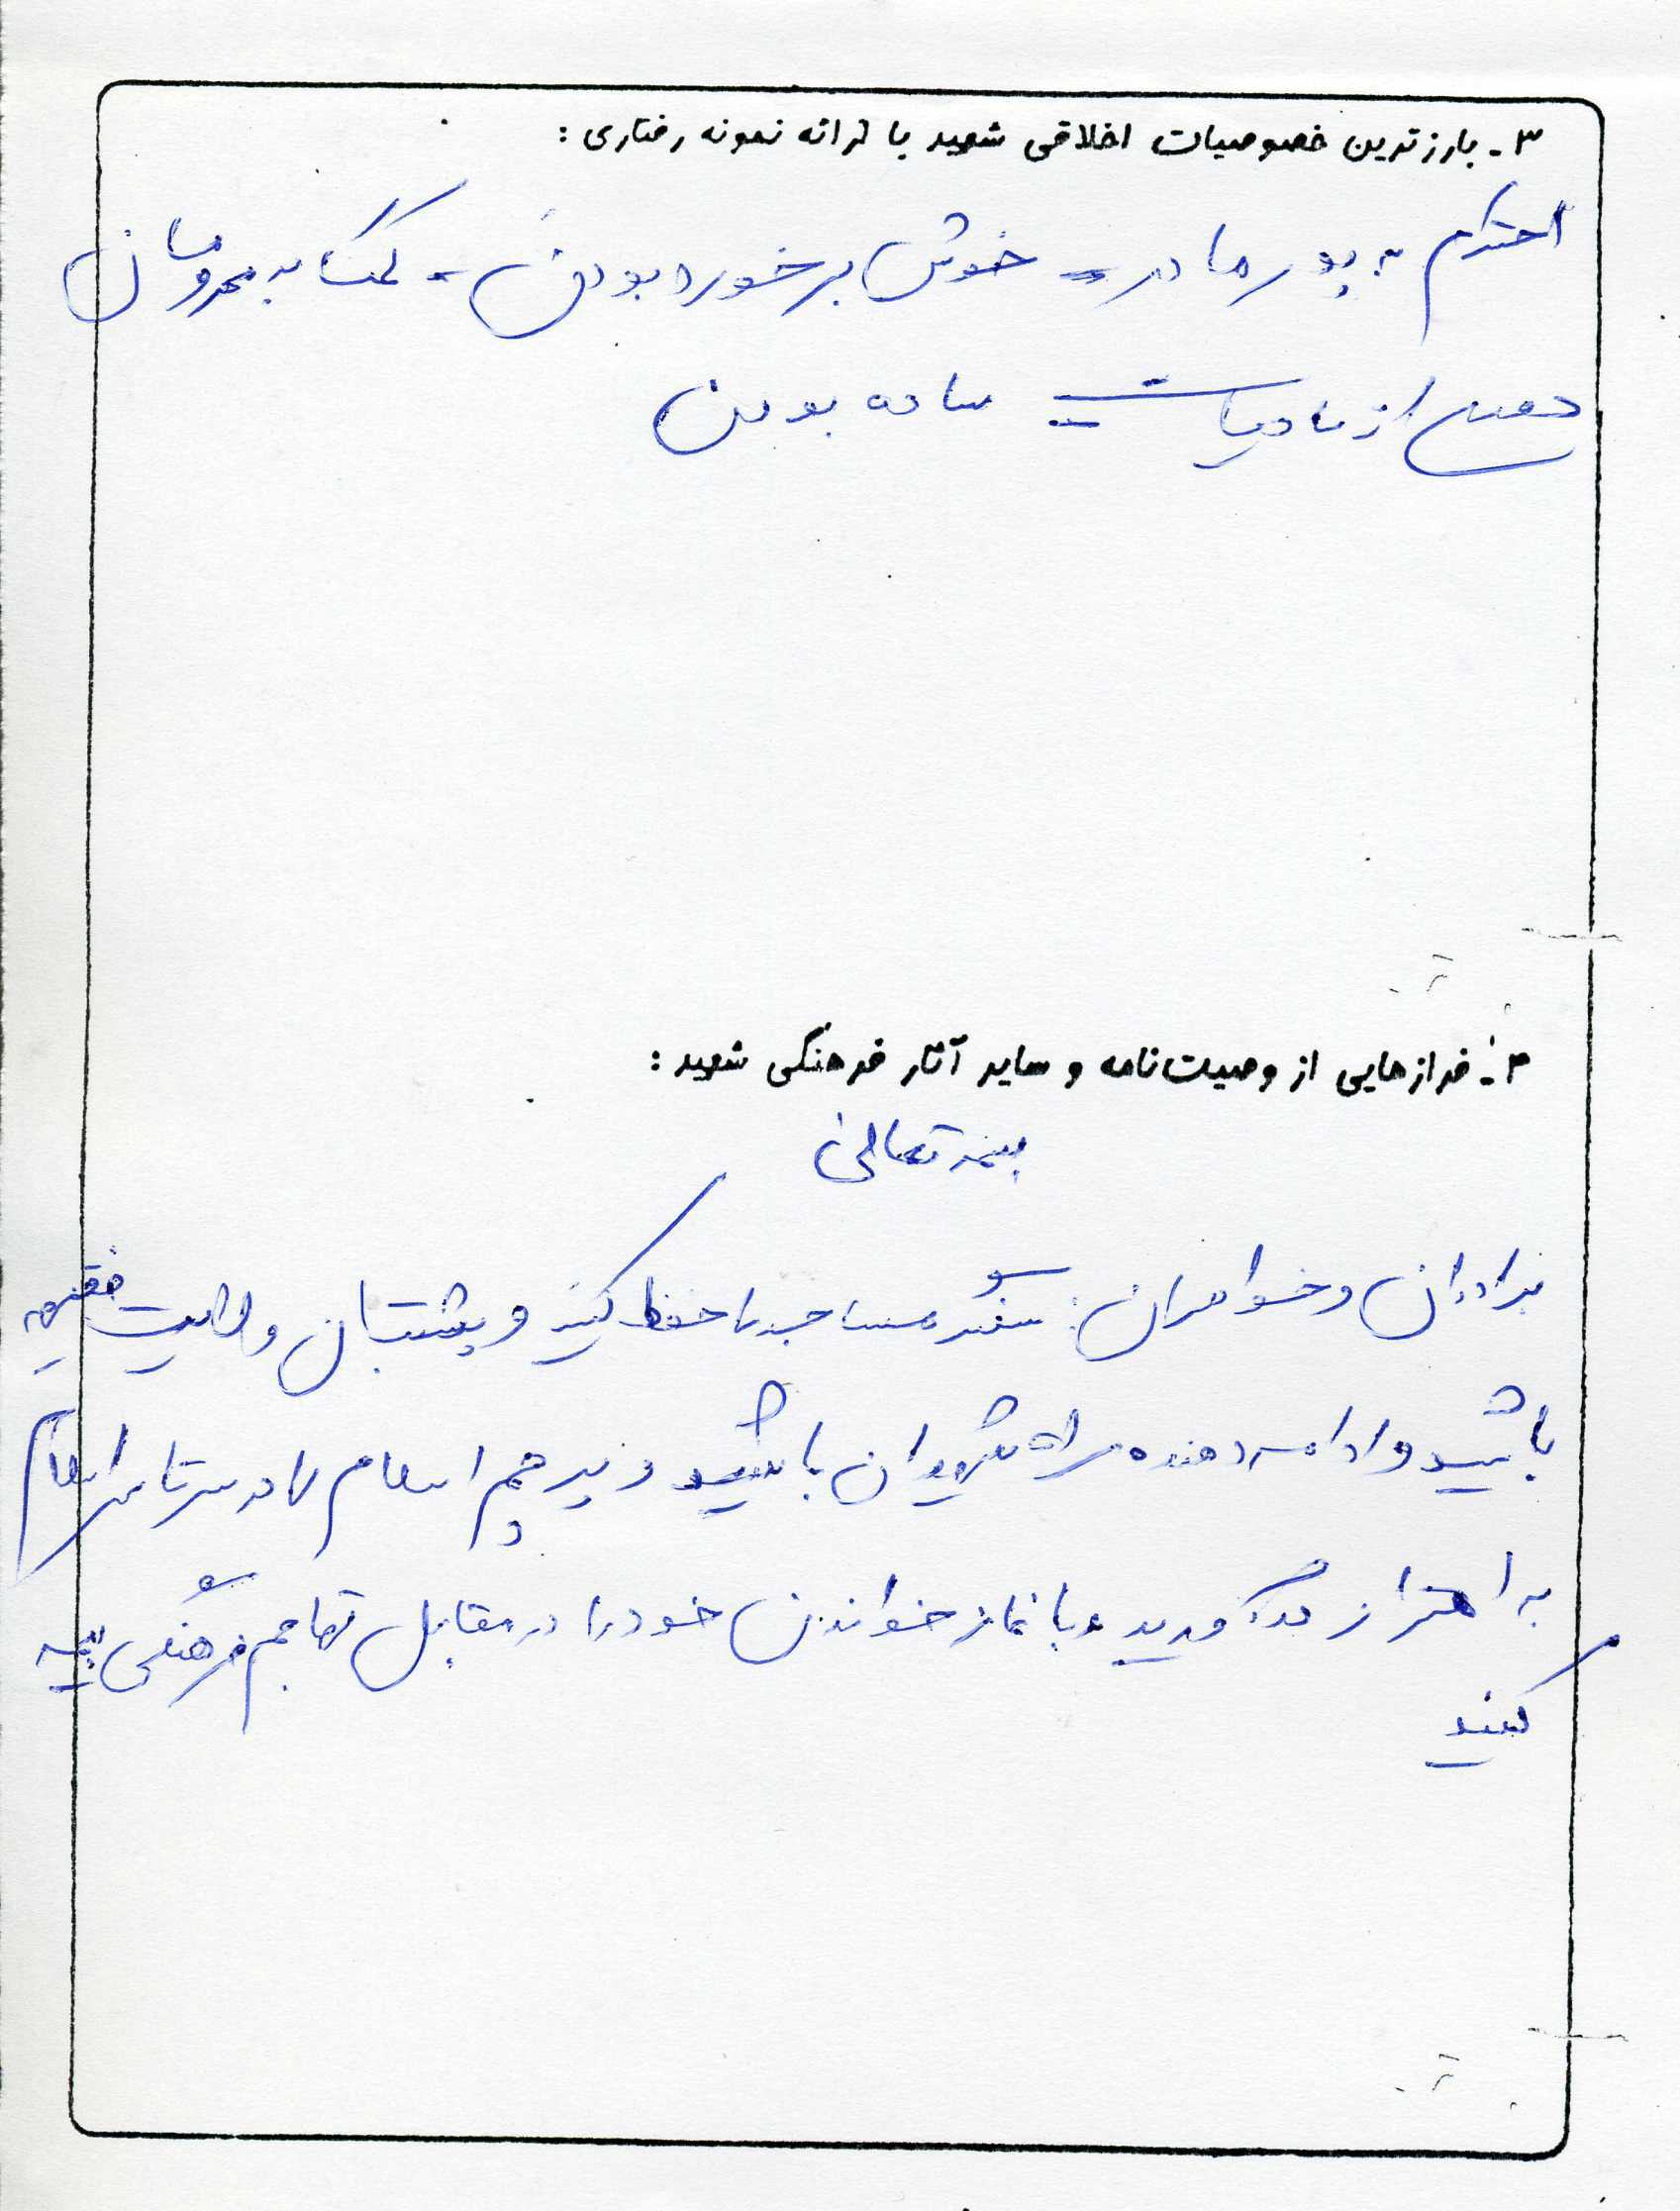 ۳ـ بارزترین خصوصیات اخلاقی شهید با ارائه نمونه رفتاری :
احترام به پدر مادر ـ خوش برخورد بودن ـ کمک به محرومان
از مادیات ـ ساده بودن
۴ـ فرازهایی از وصیت‌نامه و سایر آثار فرهنگی شهید :
بسمه تعالی
برادران و خواهران : سنگر مساجد را حفظ کنید و پشتیبان ولایت فقیه
باشید و ادامه دهنده راه شهیدان باشید و پرچم اسلام را در سرتاسر
به اهتزاز درآورید و با نماز خواندن خود را در مقابل تهاجم فرهنگی بیمه
کنید